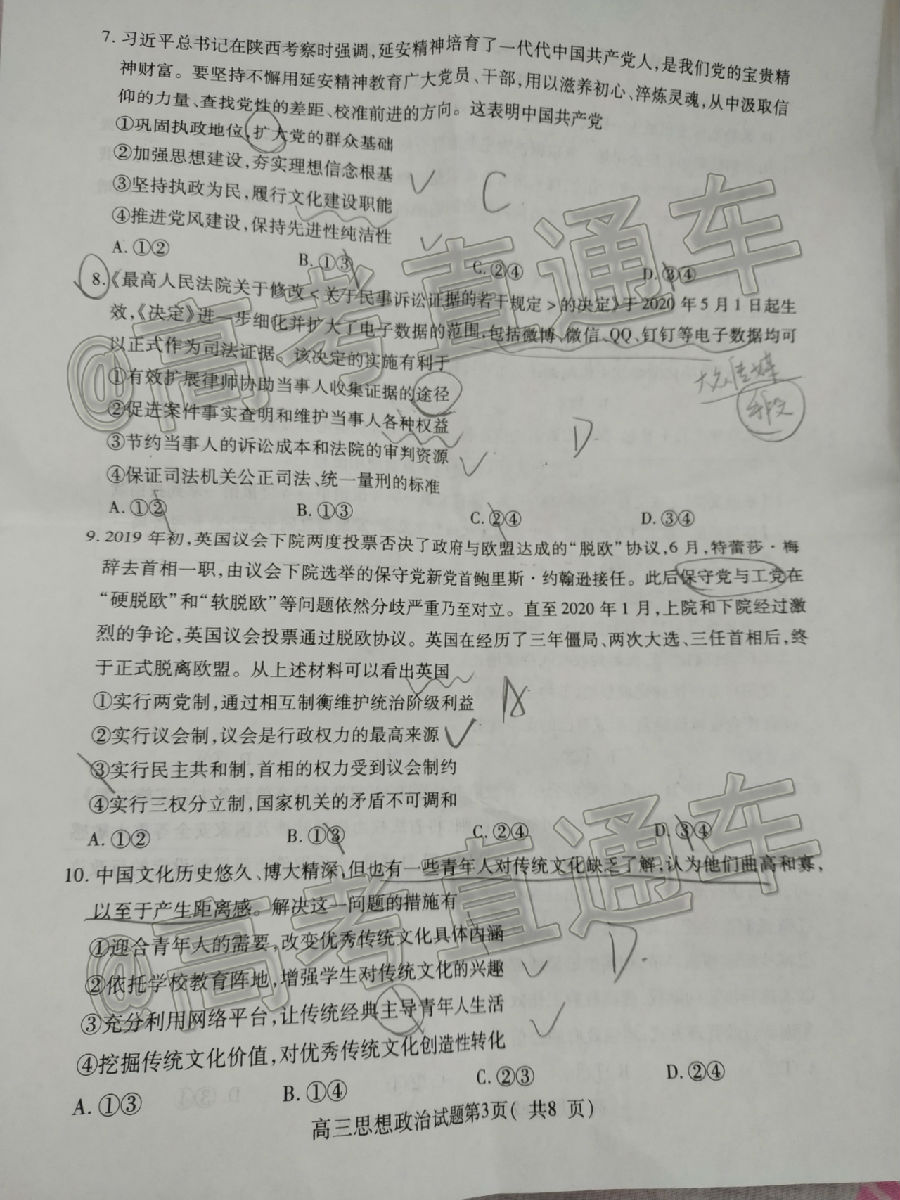 7. 习近平总书记在陕西考察时强调,延安精神培育了一代代中国共产党人,是我们党的宝贵精
神财富。要坚持不懈用延安精神教育广大党员、干部,用以滋养初心、淬炼灵魂,从中汲取信
仰的力量、查找党性的差距、校准前进的方向。这表明中国共产党
①巩固执政地位,扩大党的群众基础
②加强思想建设,夯实理想信念根基
③坚持执政为民,履行文化建设职能
④推进党风建设,保持先进性纯洁性
C
A. ①② B. ①③ C. ②④ D. ③④
8.《最高人民法院关于修改<关于民事诉讼证据的若干规定>的决定》于2020年5月1日起生
效,《决定》进一步细化并扩大了电子数据的范围,包括微博、微信、QQ、钉钉等电子数据均可
以正式作为司法证据。该决定的实施有利于
①有效扩展律师协助当事人收集证据的途径
②促进案件事实查明和维护当事人各种权益
③节约当事人的诉讼成本和法院的审判资源
④保证司法机关公正司法、统一量刑的标准
D
A. ①② B. ①③ C. ②④ D. ③④
9. 2019年初,英国议会下院两度投票否决了政府与欧盟达成的“脱欧”协议,6月,特蕾莎·梅
辞去首相一职,由议会下院选举的保守党新党首鲍里斯·约翰逊接任。此后保守党与工党在
“硬脱欧”和“软脱欧”等问题依然分歧严重乃至对立。直至2020年1月,上院和下院经过激
烈的争论,英国议会投票通过脱欧协议。英国在经历了三年僵局、两次大选、三任首相后,终
于正式脱离欧盟。从上述材料可以看出英国
①实行两党制,通过相互制衡维护统治阶级利益
②实行议会制,议会是行政权力的最高来源
③实行民主共和制,首相的权力受到议会制约
④实行三权分立制,国家机关的矛盾不可调和
A
A. ①② B. ①③ C. ②④ D. ③④
10. 中国文化历史悠久、博大精深,但也有一些青年人对传统文化缺乏了解,认为他们曲高和寡,
以至于产生距离感。解决这一问题的措施有
①迎合青年人的需要,改变优秀传统文化具体内涵
②依托学校教育阵地,增强学生对传统文化的兴趣
③充分利用网络平台,让传统经典主导青年人生活
④挖掘传统文化价值,对优秀传统文化创造性转化
D.
A. ①③ B. ①④ C. ②③ D. ②④
高三思想政治试题第3页( 共8 页)
@高考直通车
@高考直通车